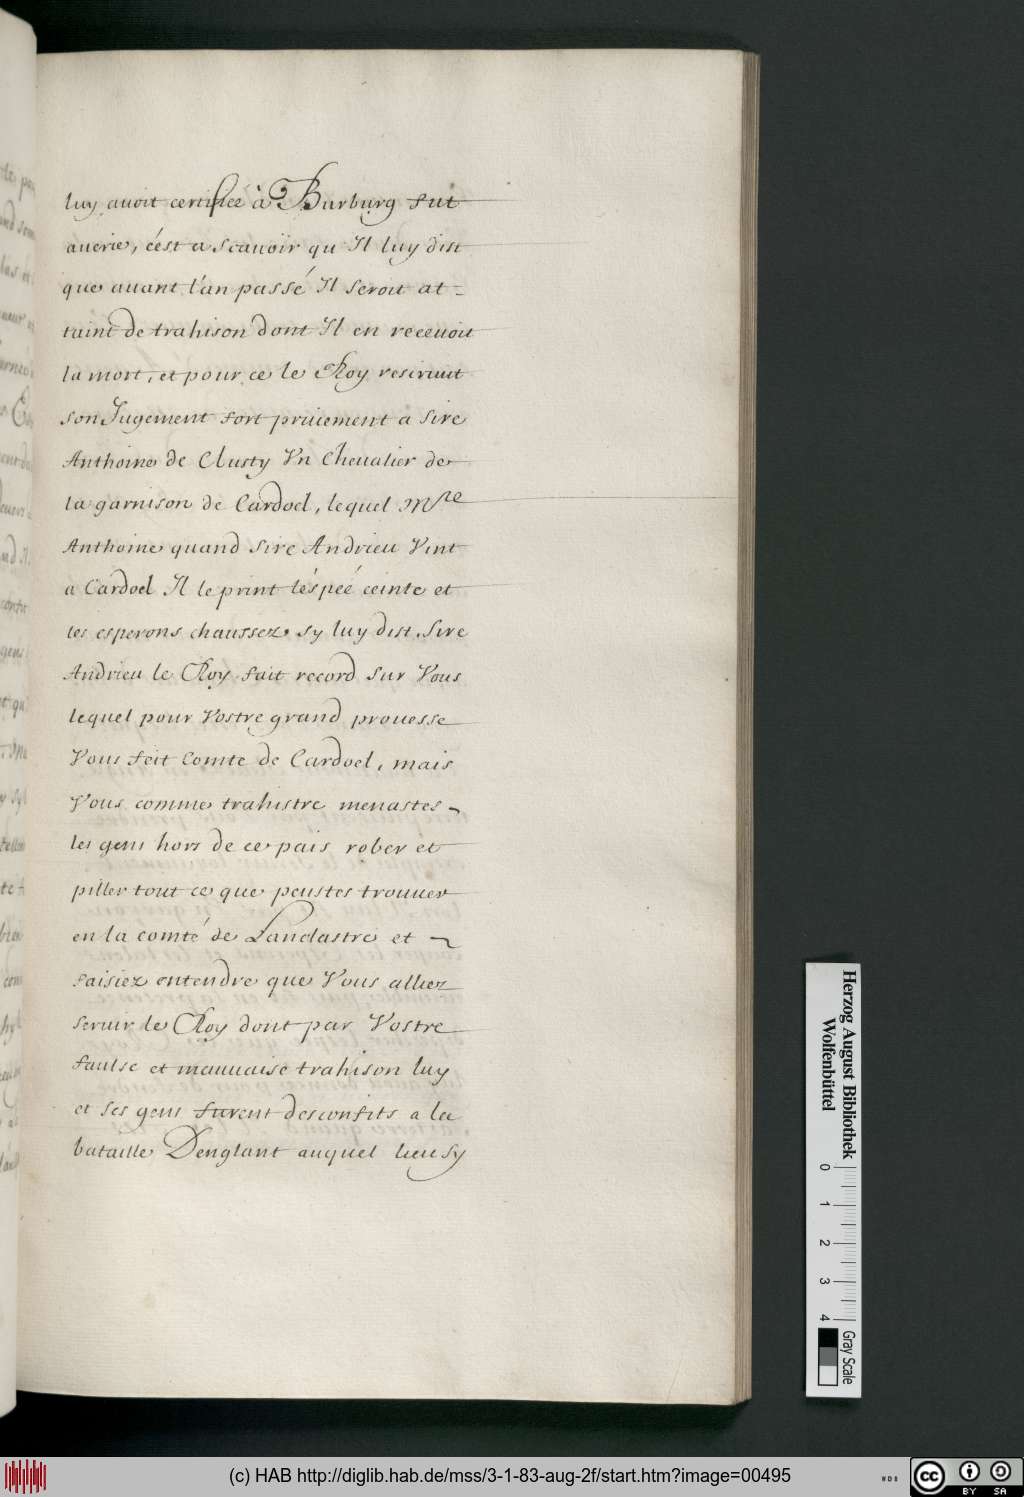 luy auoit certifiée à Burburg fut
auerie, c'est a scauoir qu Il luy dist
que auant l'an passé Il seroit at-
taint de trahison dont Il en receuoit
la mort, et pour ce le Roy rescriuit
son Jugement fort priuement a sire
Anthoine de Clusty Vn Cheualier de
la garnison de Cardoel, lequel Mre
Anthoine quand sire Andrieu Vint
a Cardoel Il le print l'éspeé ceinte et
les esperons chaussez sy luy dist. Sire
Andrieu le Roy fait record sur Vous
lequel pour Vostre grand prouesse
Vous feit Comte de Cardoel, mais
Vous comme trahistre menastes
les gens hors de ce pais rober et
piller tout ce que peustes trouuer
en la comté de Lanclastre et
faisiez entendre que Vous alliez
seruir le Roy dont par Vostre
faulse et mauuaise trahison luy
et ses gens furent desconfits a la
bataille Denglant auquel lieu sy
Herzog August Bibliothek
Wolfenbüttel
0 1 2 3 4
Gray Scale
(c) HAB http://diglib.hab.de/mss/3-1-83-aug-2f/start.htm?image=00495
cc BY SA